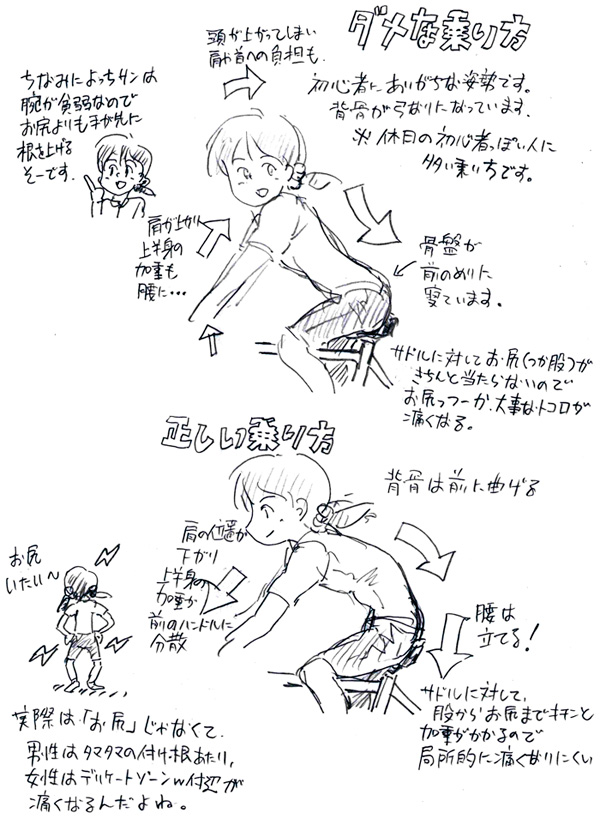 ダメな乗り方
頭が上がってしまい
肩や首への負担も.
初心者にありがちな姿勢です。
背骨が弓なりになっています.
※休日の初心者っぽい人に
多い乗り方です。
ちなみによっちサンは
腕が貧弱なので
お尻よりも手が先に
根を上げる
そーです.
肩が上がり
上半身の
加重も
腰に…
骨盤が
前のめりに
寝ています。
サドルに対してお尻(つか股)が
きちんと当たらないので
お尻っつーか、大事なトコロが
痛くなる。
正しい乗り方
背骨は前に曲げる
肩の位置が
下がり
上半身の
加重が
前のハンドルに
分散
お尻
いたい〜
腰は
立てる!
サドルに対して、
股からお尻までキチンと
加重がかかるので
局所的に痛くなりにくい
実際は「お尻」じゃなくて、
男性はタマタマの付け根あたり,
女性はデリケートゾーンw付辺が
痛くなるんだよね。